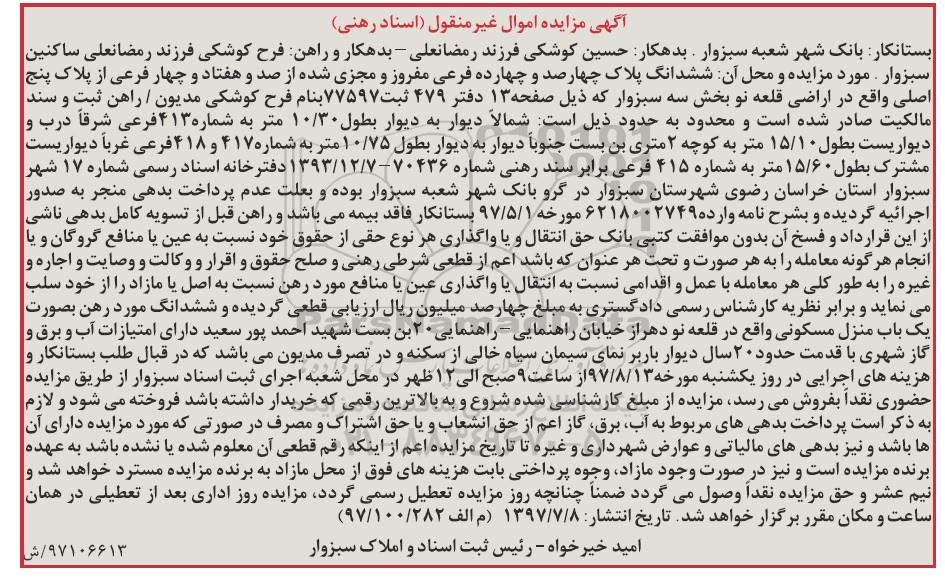 آگهی مزایده اموال غیرمنقول (اسناد رهنی)
بستانکار: بانک شهر شعبه سبزوار . بدهکار: حسین کوشکی فرزند رمضانعلی – بدهکار و راهن: فرح کوشکی فرزند رمضانعلی ساکنین
سبزوار . مورد مزایده و محل آن: ششدانگ پلاک چهارصد و چهارده فرعی مفروز و مجزی شده از صد و هفتاد و چهار فرعی از پلاک پنج
اصلی واقع در اراضی قلعه نو بخش سه سبزوار که ذیل صفحه۱۳ دفتر ۴۷۹ ثبت۷۷۵۹۷بنام فرح کوشکی مدیون / راهن ثبت و سند
مالکیت صادر شده است و محدود به حدود ذیل است: شمالاً دیوار به دیوار بطول۱۰/۳۰ متر به شماره۴۱۳فرعی شرقاً درب و
دیواریست بطول۱۵/۱۰ متر به کوچه ۲متری بن بست جنوباً دیوار به دیوار بطول ۱۰/۷۵متر به شماره۴۱۷ و ۴۱۸ فرعی غرباً دیواریست
مشترک بطول۱۵/۶۰متر به شماره ۴۱۵ فرعی برابر سند رهنی شماره ۷۰۴۳۶–۱۳۹۳/۱۲/۷دفترخانه اسناد رسمی شماره ۱۷ شهر
سبزوار استان خراسان رضوی شهرستان سبزوار در گرو بانک شهر شعبه سبزوار بوده و بعلت عدم پرداخت بدهی منجر به صدور
اجرائیه گردیده و بشرح نامه وارده۶۲۱۸۰۰۲۷۴۹ مورخه ۹۷/۵/۱ بستانکار فاقد بیمه می باشد و راهن قبل از تسویه کامل بدهی ناشی
از این قرارداد و فسخ آن بدون موافقت کتبی بانک حق انتقال و یا واگذاری هر نوع حقی از حقوق خود نسبت به عین یا منافع گروگان و یا
انجام هرگونه معامله را به هر صورت و تحت هر عنوان که باشد اعم از قطعی شرطی رهنی و صلح حقوق و اقرار و وکالت و وصایت و اجاره و
غیره را به طور کلی هر معامله با عمل و اقدامی نسبت به انتقال یا واگذاری عین یا منافع مورد رهن نسبت به اصل یا مازاد را از خود سلب
می نماید و برابر نظریه کارشناس رسمی دادگستری به مبلغ چهارصد میلیون ریال ارزیابی قطعی گردیده و ششدانگ مورد رهن بصورت
یک باب منزل مسکونی واقع در قلعه نو دهراز خیابان راهنمایی – راهنمایی ۲۰بن بست شهید احمد پور سعید دارای امتیازات آب و برق و
گاز شهری با قدمت حدود۲۰سال دیوار باربر نمای سیمان سیاه خالی از سکنه و در تصرف مدیون می باشد که در قبال طلب بستانکار و
هزینه های اجرایی در روز یکشنبه مورخه۹۷/۸/۱۳از ساعت۹صبح الی۱۲ظهر در محل شعبه اجرای ثبت اسناد سبزوار از طریق مزایده
حضوری نقداً بفروش می رسد، مزایده از مبلغ کارشناسی شده شروع و به بالاترین رقمی که خریدار داشته باشد فروخته می شود و لازم
به ذکر است پرداخت بدهی های مربوط به آب، برق، گاز اعم از حق انشعاب و یا حق اشتراک و مصرف در صورتی که مورد مزایده دارای آن
ها باشد و نیز بدهی های مالیاتی و عوارض شهرداری و غیره تا تاریخ مزایده اعم از اینکه رقم قطعی آن معلوم شده یا نشده باشد به عهده
برنده مزایده است و نیز در صورت وجود مازاد، وجوه پرداختی بابت هزینه های فوق از محل مازاد به برنده مزایده مسترد خواهد شد و
نیم عشر و حق مزایده نقداً وصول می گردد ضمناً چنانچه روز مزایده تعطیل رسمی گردد، مزایده روز اداری بعد از تعطیلی در همان
ساعت و مکان مقرر برگزار خواهد شد. تاریخ انتشار: ۱۳۹۷/۷/۸ (م الف ۹۷/۱۰۰/۲۸۲)
امید خیرخواه - رئیس ثبت اسناد و املاک سبزوار
۹۷۱۰۶۶۱۳/ش
ParsNamadData